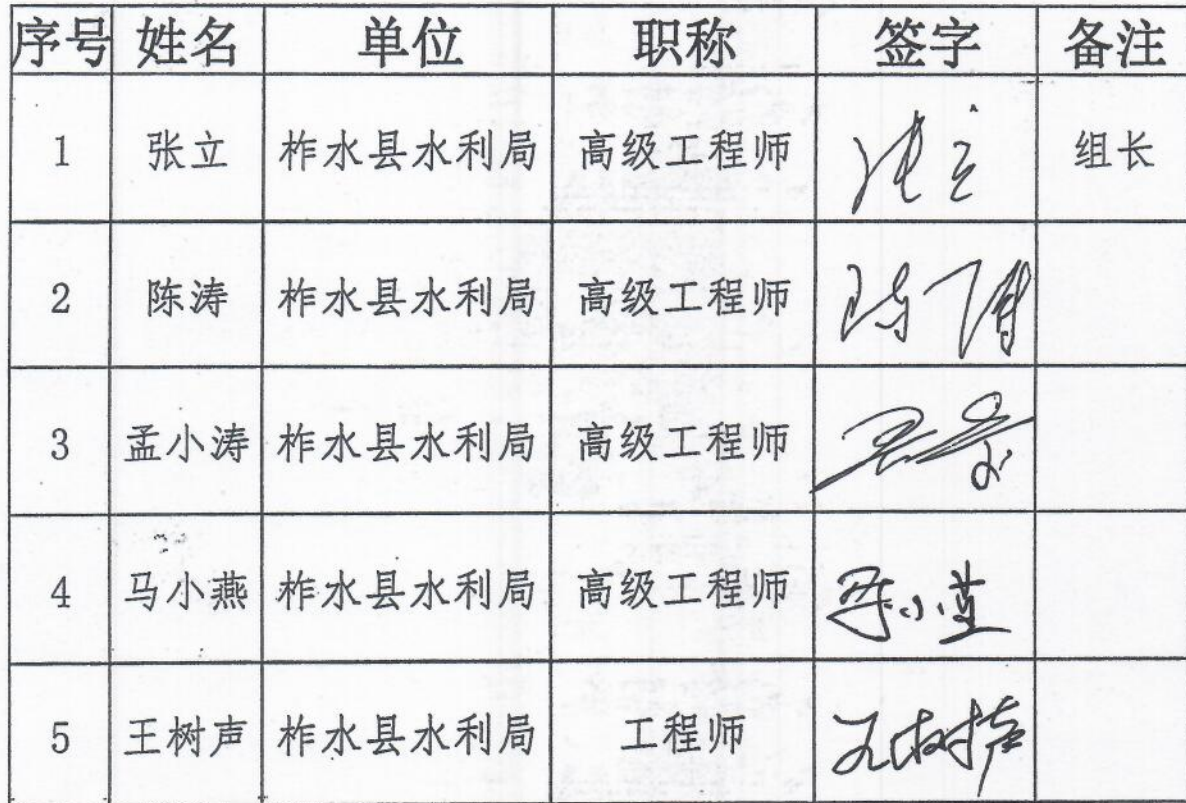 序号 姓名 单位 职称 签字 备注
1 张立 柞水县水利局 高级工程师 张立 组长
2 陈涛 柞水县水利局 高级工程师 陈涛
3 孟小涛 柞水县水利局 高级工程师
4 马小燕 柞水县水利局 高级工程师
5 王树声 柞水县水利局 工程师 王树声